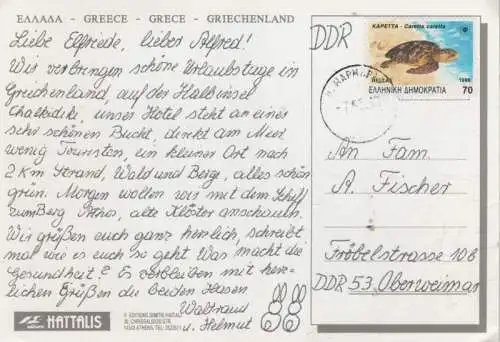 ΕΛΛΑΔΑ - GREECE - GRECE - GRIECHENLAND
Liebe Elfriede, lieber Alfred!
Wir verbringen schöne Urlaubstage in
Griechenland, auf der Halbinsel
Chalkidiki, unser Hotel steht an einer
sehr schönen Bucht, direkt am Meer
wenig Touristen, ein kleiner Ort nach
2 Km Strand, Wald und Berge, alles schön
grün. Morgen wollen wir mit dem Schiff
zum Berg Athos, alte Klöster anschauen.
Wir grüßen euch ganz herzlich, schreibt
mal wie es euch so geht Was macht die
Gesundheit? Es verbleiben mit herz-
lichen Grüßen die beiden Hasen
Waltraud
u. Helmut
HATTALIS
DDR
ΚΑΡΕΤΤΑ - Caretta caretta
HELLAS
1990
ΕΛΛΗΝΙΚΗ ΔΗΜΟΚΡΑΤΙΑ
70
An Fam.
A. Fischer
Fröbelstrasse 106
DDR 53 Oberweimar